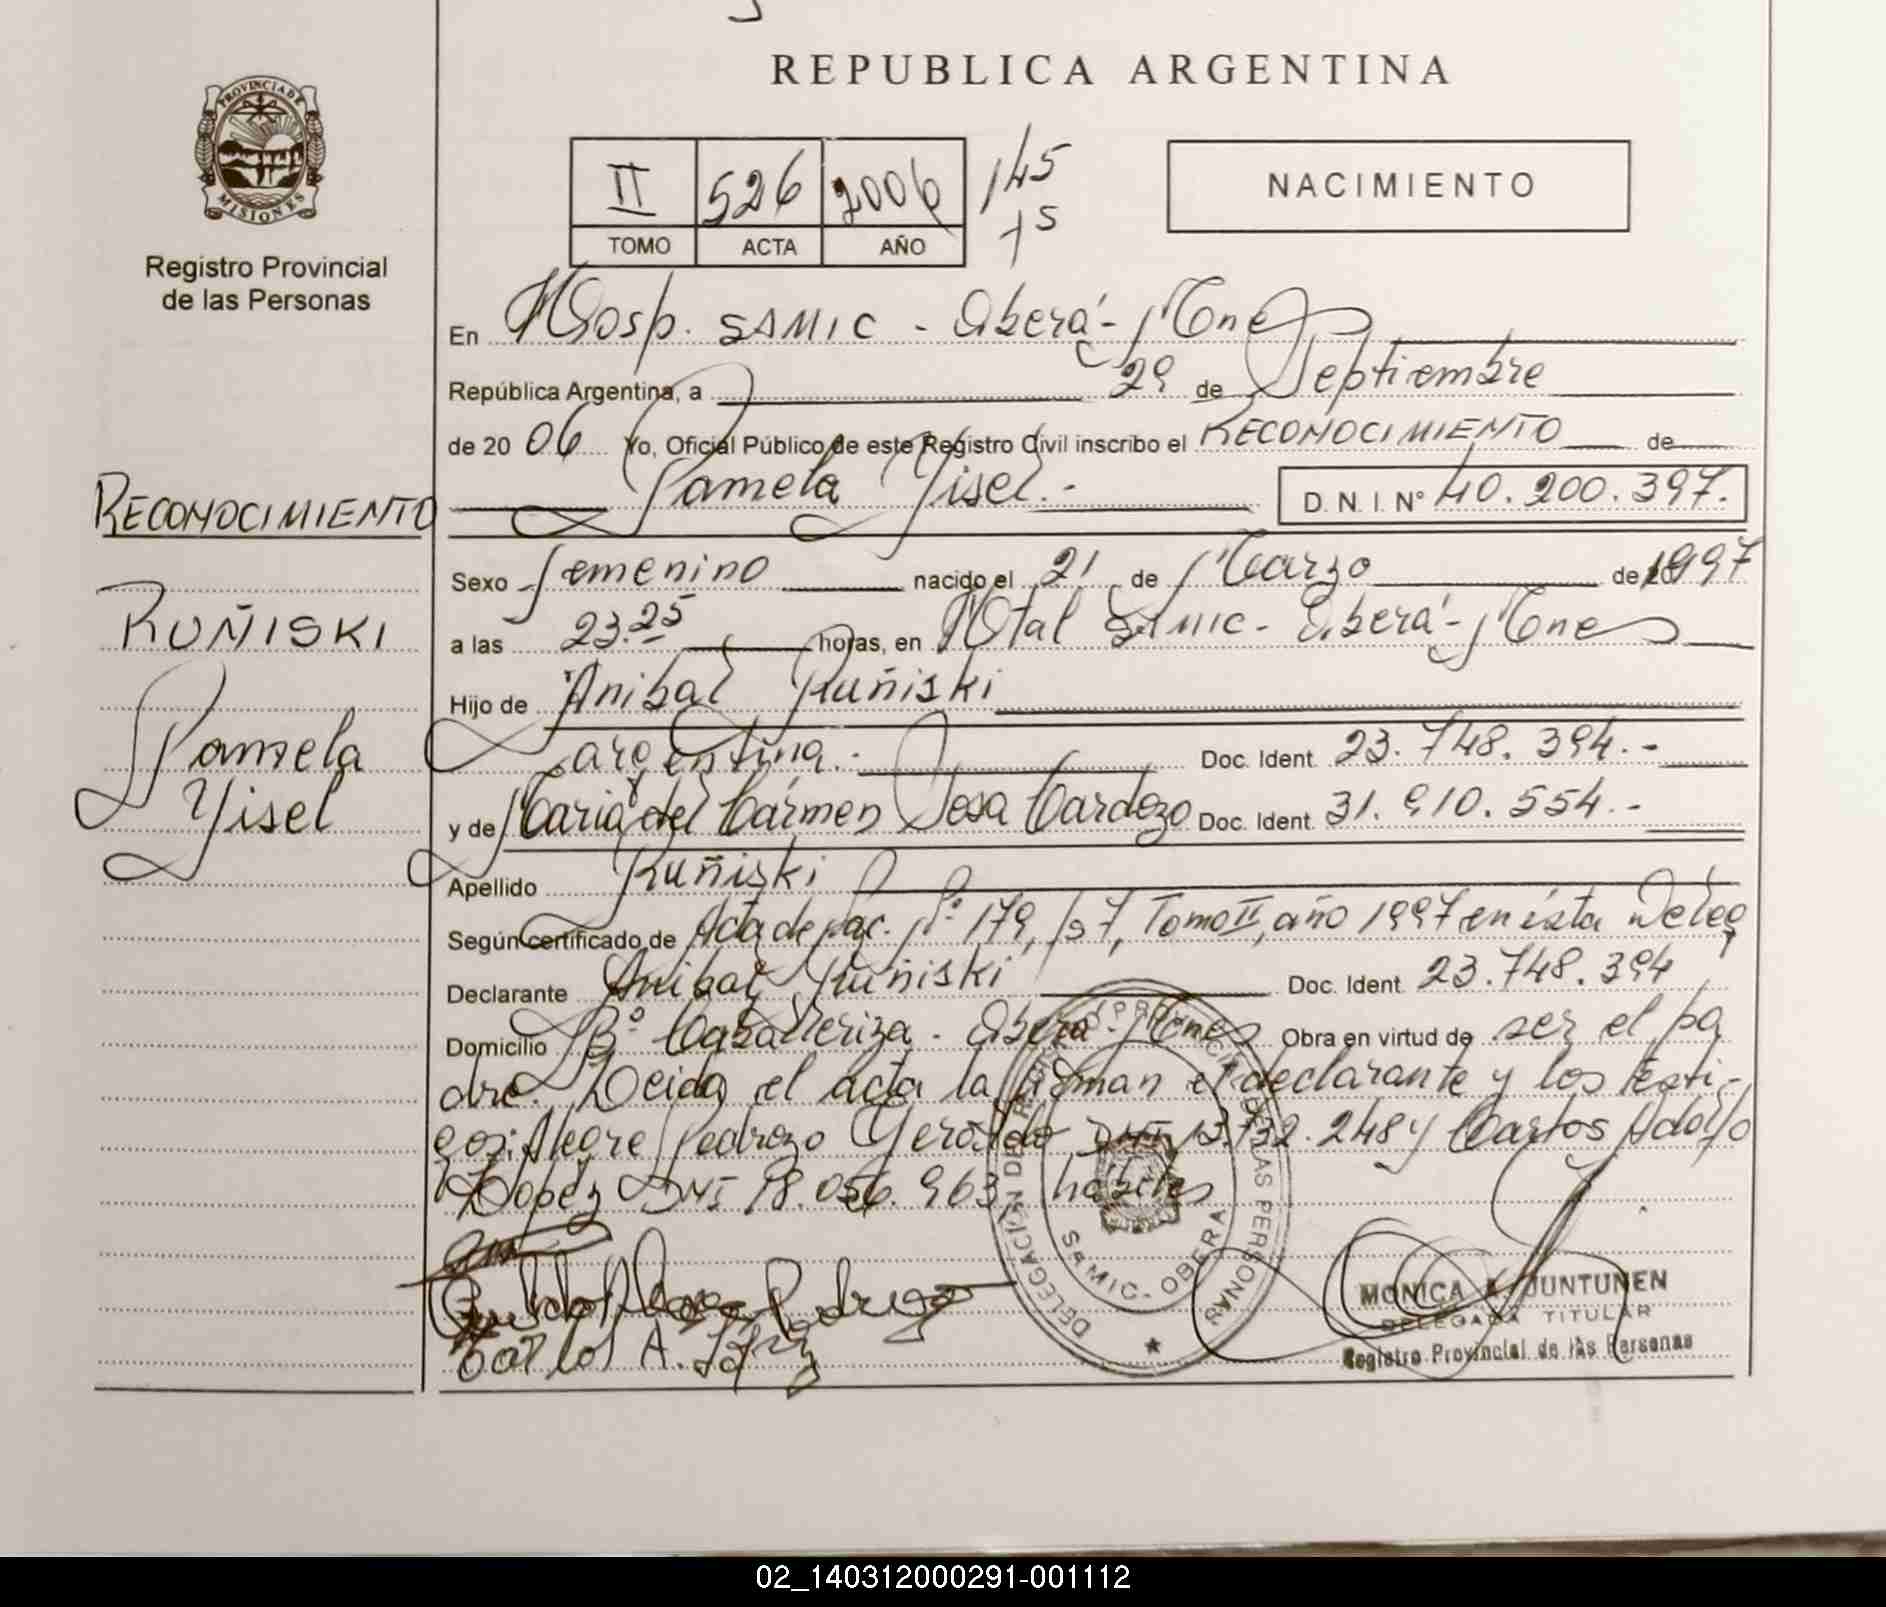 REPUBLICA ARGENTINA
PROVINCIA DE
MISIONES
Registro Provincial
de las Personas
II 526 2006
TOMO ACTA AÑO
145
NACIMIENTO
En Hosp. SAMIC - Oberá - Mnes
República Argentina, a 29 de Septiembre
de 20 06 Yo, Oficial Público de este Registro Civil inscribo el RECONOCIMIENTO de
Pamela Yisel.- D. N. I. Nº 40.200.397.
RECONOCIMIENTO
RUÑISKI
Pamela
Yisel
Sexo femenino nacido el 21 de Marzo de 1997
a las 23.25 horas, en Htal SAMIC - Oberá - Mnes
Hijo de Anibal Ruñiski
argentina.- Doc. Ident. 23.748.394.-
y de Maria del Cármen Sosa Cardozo Doc. Ident. 31.910.554.-
Apellido Ruñiski
Según certificado de Acta de Nac. Nº 179, Tomo II, año 1997 en ésta Deleg
Declarante Anibal Ruñiski Doc. Ident. 23.748.394
Domicilio Bº Caballeriza - Oberá - Mnes Obra en virtud de ser el pa
dre. Leida el acta la firman el declarante y los testi-
gos: Alegre Pedrozo Gerónido DNI 13.732.248 y Carlos Adolfo
Lopez DNI 18.056.963 hábiles
Carlos A. López
DELEGACIÓN DE REGISTRO PROVINCIAL DE LAS PERSONAS
SAMIC - OBERA
MONICA A. JUNTUNEN
DELEGADA TITULAR
Registro Provincial de las Personas
02_140312000291-001112